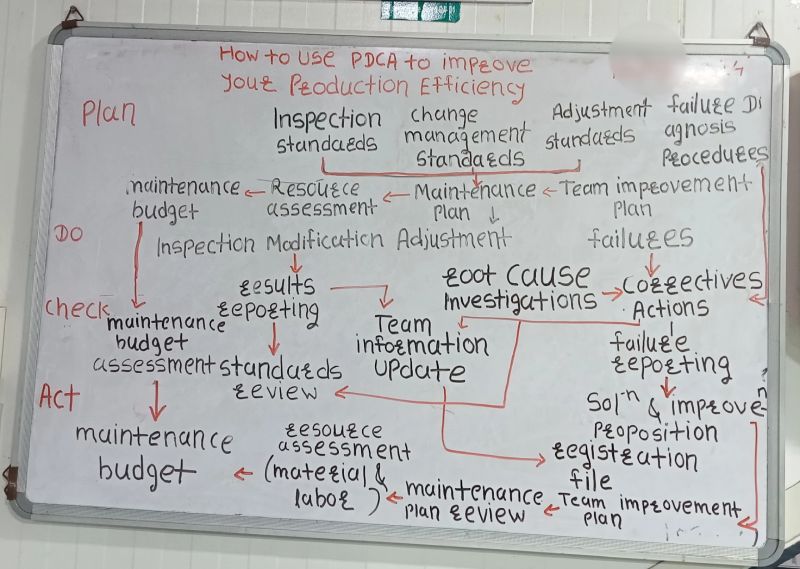 How to use PDCA to improve
your Production Efficiency
Plan
Inspection standards
change management standards
Adjustment standards
failure Diagnosis Procedures
maintenance budget
Resource assessment
Maintenance Plan
Team improvement Plan
DO
Inspection Modification Adjustment
failures
results reporting
root cause investigations
correctives Actions
check
maintenance budget assessment
standards review
Team information update
failure reporting
Act
Solⁿ & improveⁿ proposition
registration file
maintenance budget
resource assessment (material & labor)
maintenance plan review
Team improvement plan